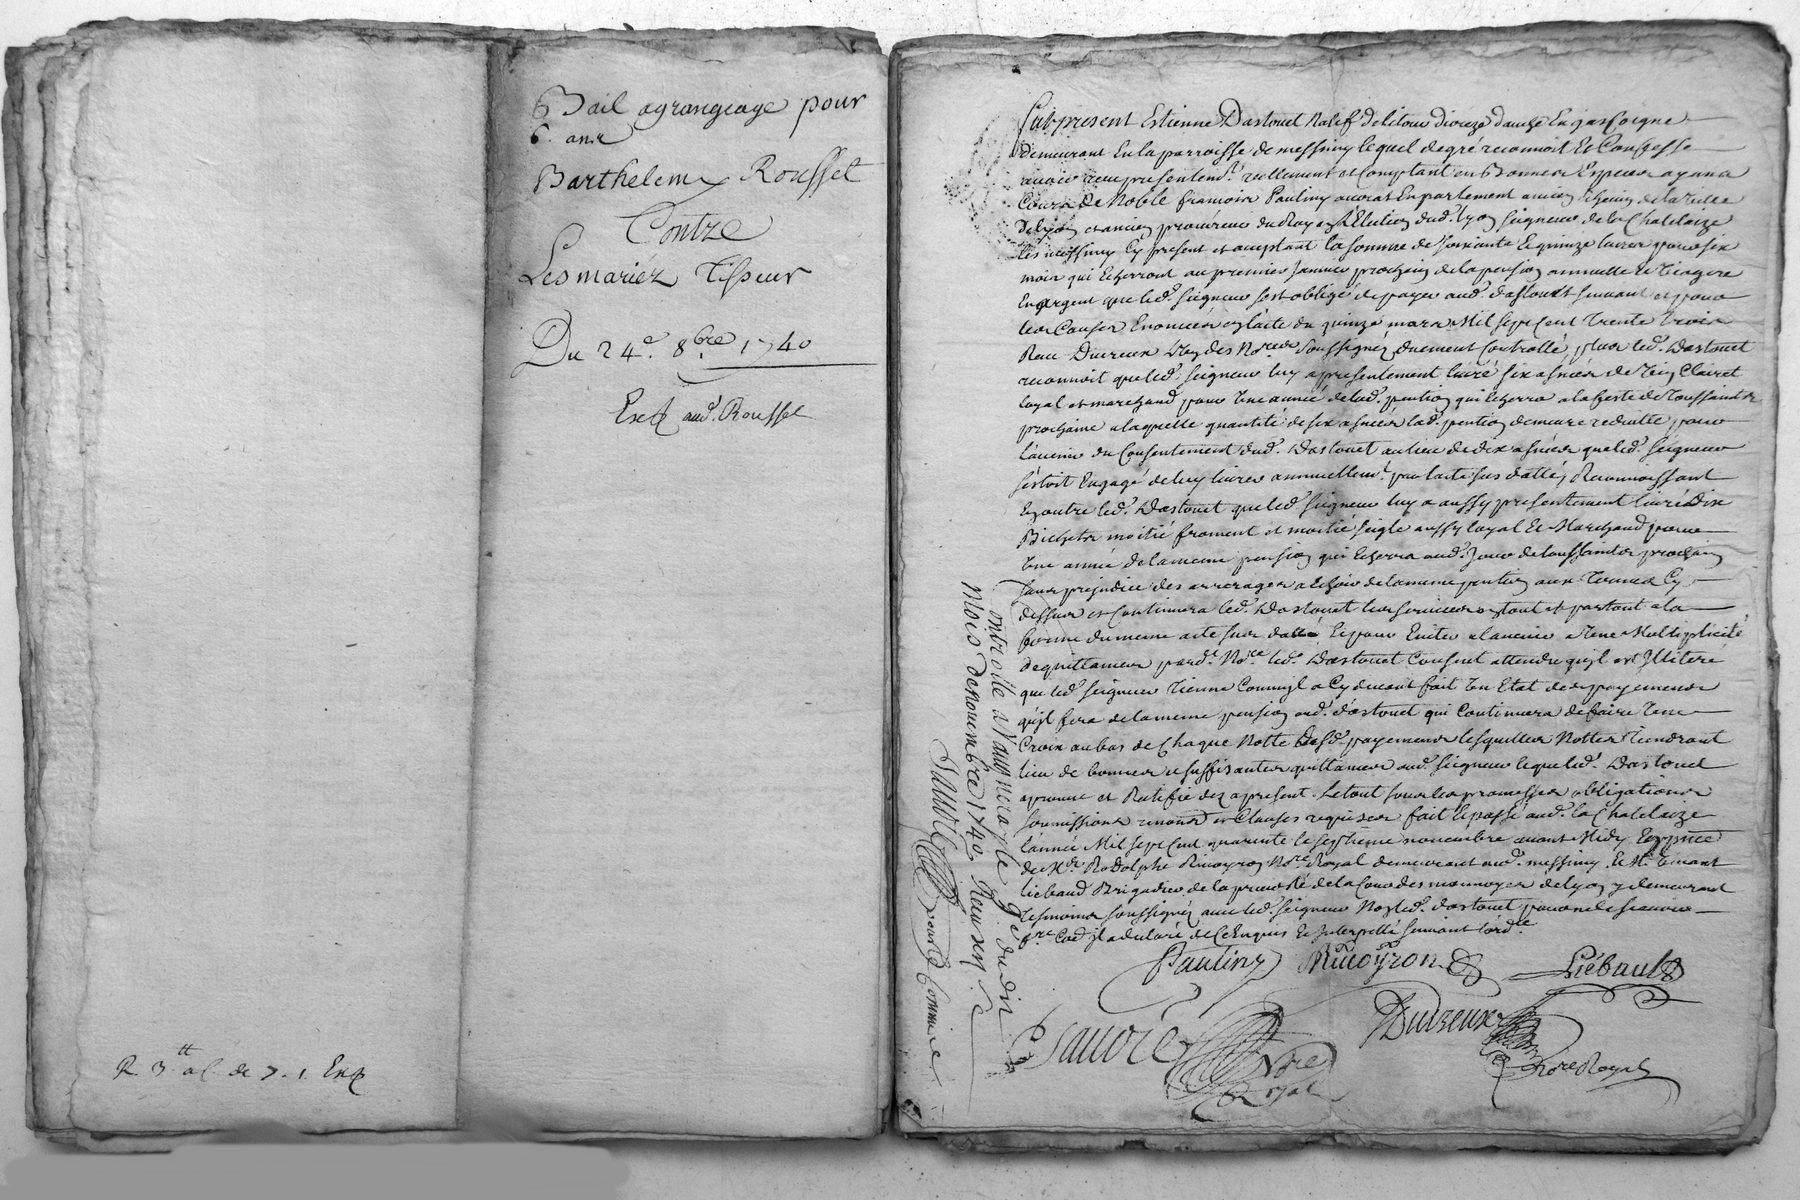 Bail agrangeage pour
6. ans
Barthelemy Rousset
Contre
Les mariéz Tisseur
Du 24e. 8bre 1740
Exp audt Rousset
R 3tt de 7. 1. Exp
Fut present Estienne Dastouet Natif de dioceze dauche En gascoigne
demeurant En la parroisse de messimy lequel de gré reconnoit Et Confesse
avoir receu presentemt. reellement et Comptant En Bonnes Especes ayant
Cours De Noble françois Pauliny avocat En parlement ancien Echevin de la ville
De Lyon et ancien procureur du Roy En L'Election dud. Lyon seigneur de la Chatelaize
Les messimy Cy present et acceptant la somme de soixante Et quinze livres pour six
mois qui Echerront au premier Janvier prochain de la pension annuelle et viagere
En argent que led. seigneur s'est obligé de payer aud. dastouet suivant et pour
les Causes Enoncées En l'acte du quinze mars Mil sept Cent Trente Trois
Receu Ducreux L'un des Nores. soussignez duement Controllé, plus led. Dastouet
reconnoit que led. seigneur luy a presentement livré six asnées de vin Clairet
loyal et marchand pour Une année de lad. pention qui Echerra a la feste de Toussaints
prochaine a laquelle quantité de six asnées lad. pention demeure reduitte pour
l'avenir du Consentement dud. Dastouet au lieu de dix asnées que led. seigneur
s'estoit Engagé de luy livrer annuellemt. par l'acte sus datté, Reconnoissant
En outre led. Dastouet que led. seigneur luy a aussy presentement livré Dix
Bichets moitié froment et moitié seigle aussy loyal Et Marchand pour
Une année de la meme pension qui Echerra aud. Jour de toussaints prochain
sans prejudice des arrerages a Echoir de la meme pention aux Termes Cy
dessus et Continuera led. Dastouet les services En tout et par tout a la
forme du meme acte sus datté Et pour Eviter a l'avenir a Une Multiplicité
de quittances pard. Nore. led. Dastouet Consent attendu qu'il est Illiteré
que led. seigneur Tienne Comme il a Cy devant fait Un Etat des payements
qu'il fera de la meme pension aud. dastouet qui Continuera de faire Une
Croix au bas de Chaque Notte Desd. payements lesquelles Nottes Tiendront
lieu de bonnes et suffisantes quittances aud. seigneur Ce que led. Dastouet
approuve et Ratifie dez a present. Le tout sous les promesses obligations
soumissions renonons et Clauses requises fait Et passé aud. la Chatelaize
l'année Mil sept Cent quarante le septieme novembre avant Midy En pnce
de Me. Rodolphe Rivoyron Nore Royal demeurant aud. messimy. Et Sr. Vincent
Liebaud Brigadier de la prevosté de la Cour des monnoyes de Lyon y demeurant
Tesmoins soussignez avec led. seigneur Non led. dastouet pour ne le scavoir
Ce qu'il a declaré de Ce Enquis Et Interpellé suivant l'ordce
Pauliny Rivoyron Liébault
Ducreux
Nore Royal
Sauvié
Nore
Royal
Controllé a Vaugneray le 9e du dit
Mois de Novembre 1740 Receu
Sauvié pour le Commis